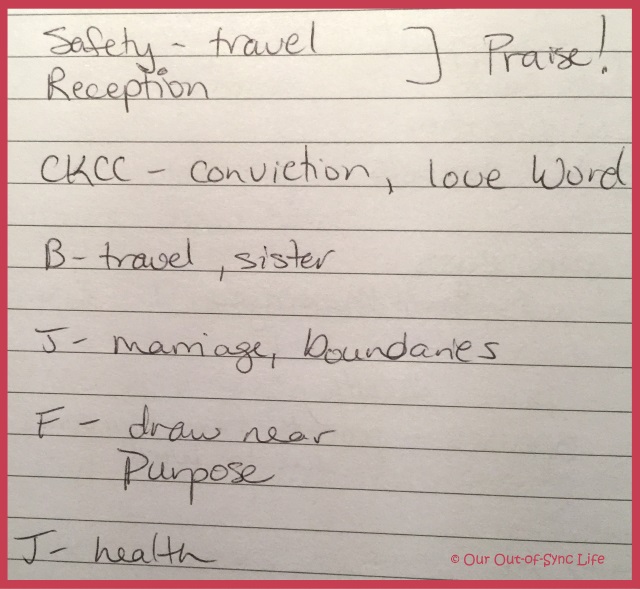 Safety - travel ] Praise!
Reception
CKCC - conviction, love Word
B - travel, sister
J - marriage, boundaries
F - draw near
Purpose
J - health
© Our Out-of-Sync Life